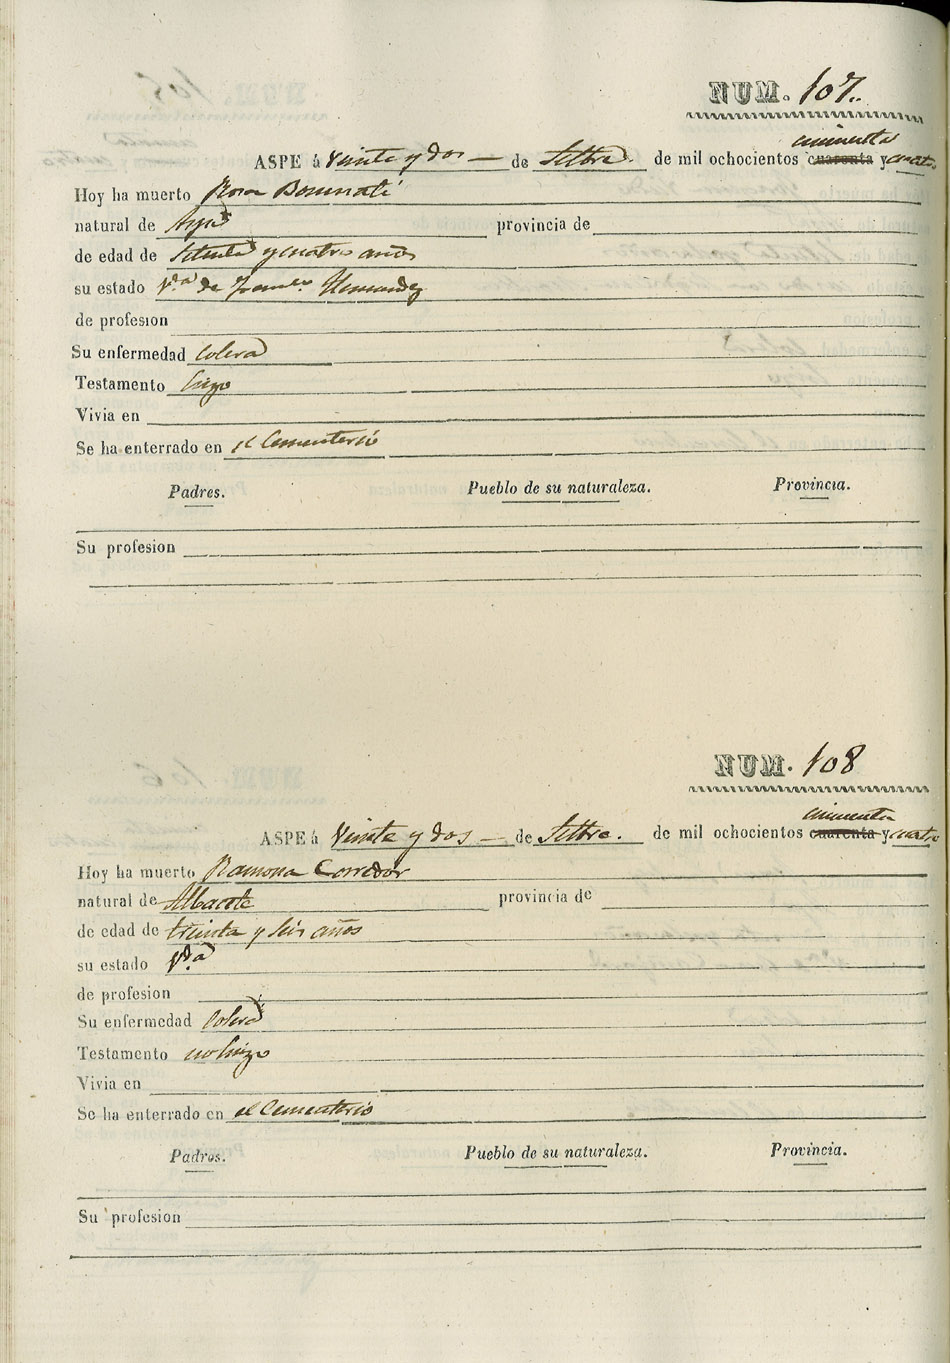 NUM. 107.
cincuenta
ASPE á Veinte y dos — de Setbre. de mil ochocientos cuarenta y cuatro
Hoy ha muerto Rosa Bonmati
natural de Aspe provincia de
de edad de Setenta y cuatro años
su estado Vda de Franco Hernandez
de profesion
Su enfermedad Colera
Testamento hizo
Vivia en
Se ha enterrado en el Cementerio
Padres. Pueblo de su naturaleza. Provincia.
Su profesion
NUM. 108
cincuenta
ASPE á Veinte y dos — de Setbre. de mil ochocientos cuarenta y cuatro
Hoy ha muerto Ramona Corredor
natural de Albacete provincia de
de edad de treinta y seis años
su estado Vda
de profesion
Su enfermedad Colera
Testamento no hizo
Vivia en
Se ha enterrado en el Cementerio
Padres. Pueblo de su naturaleza. Provincia.
Su profesion